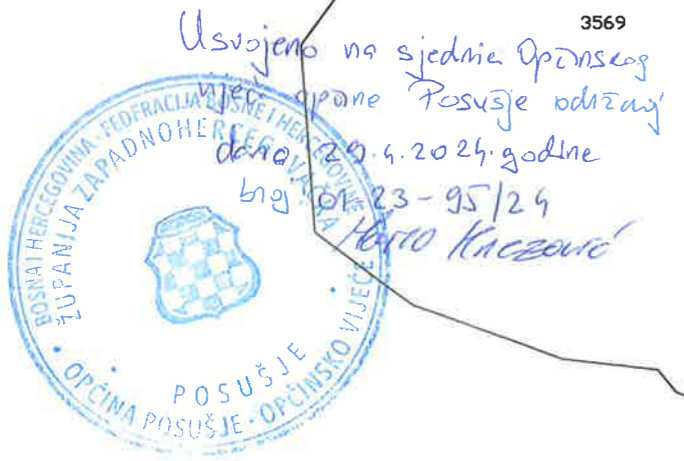 3569
Usvojeno na sjednici Općinskog
vijeća općine Posušje održanoj
dana 29.4.2024. godine
broj 01-23-95/24
Knezović
BOSNA I HERCEGOVINA · FEDERACIJA BOSNE I HERCEGOVINE
ŽUPANIJA ZAPADNOHERCEGOVAČKA
POSUŠJE
OPĆINA POSUŠJE · OPĆINSKO VIJEĆE